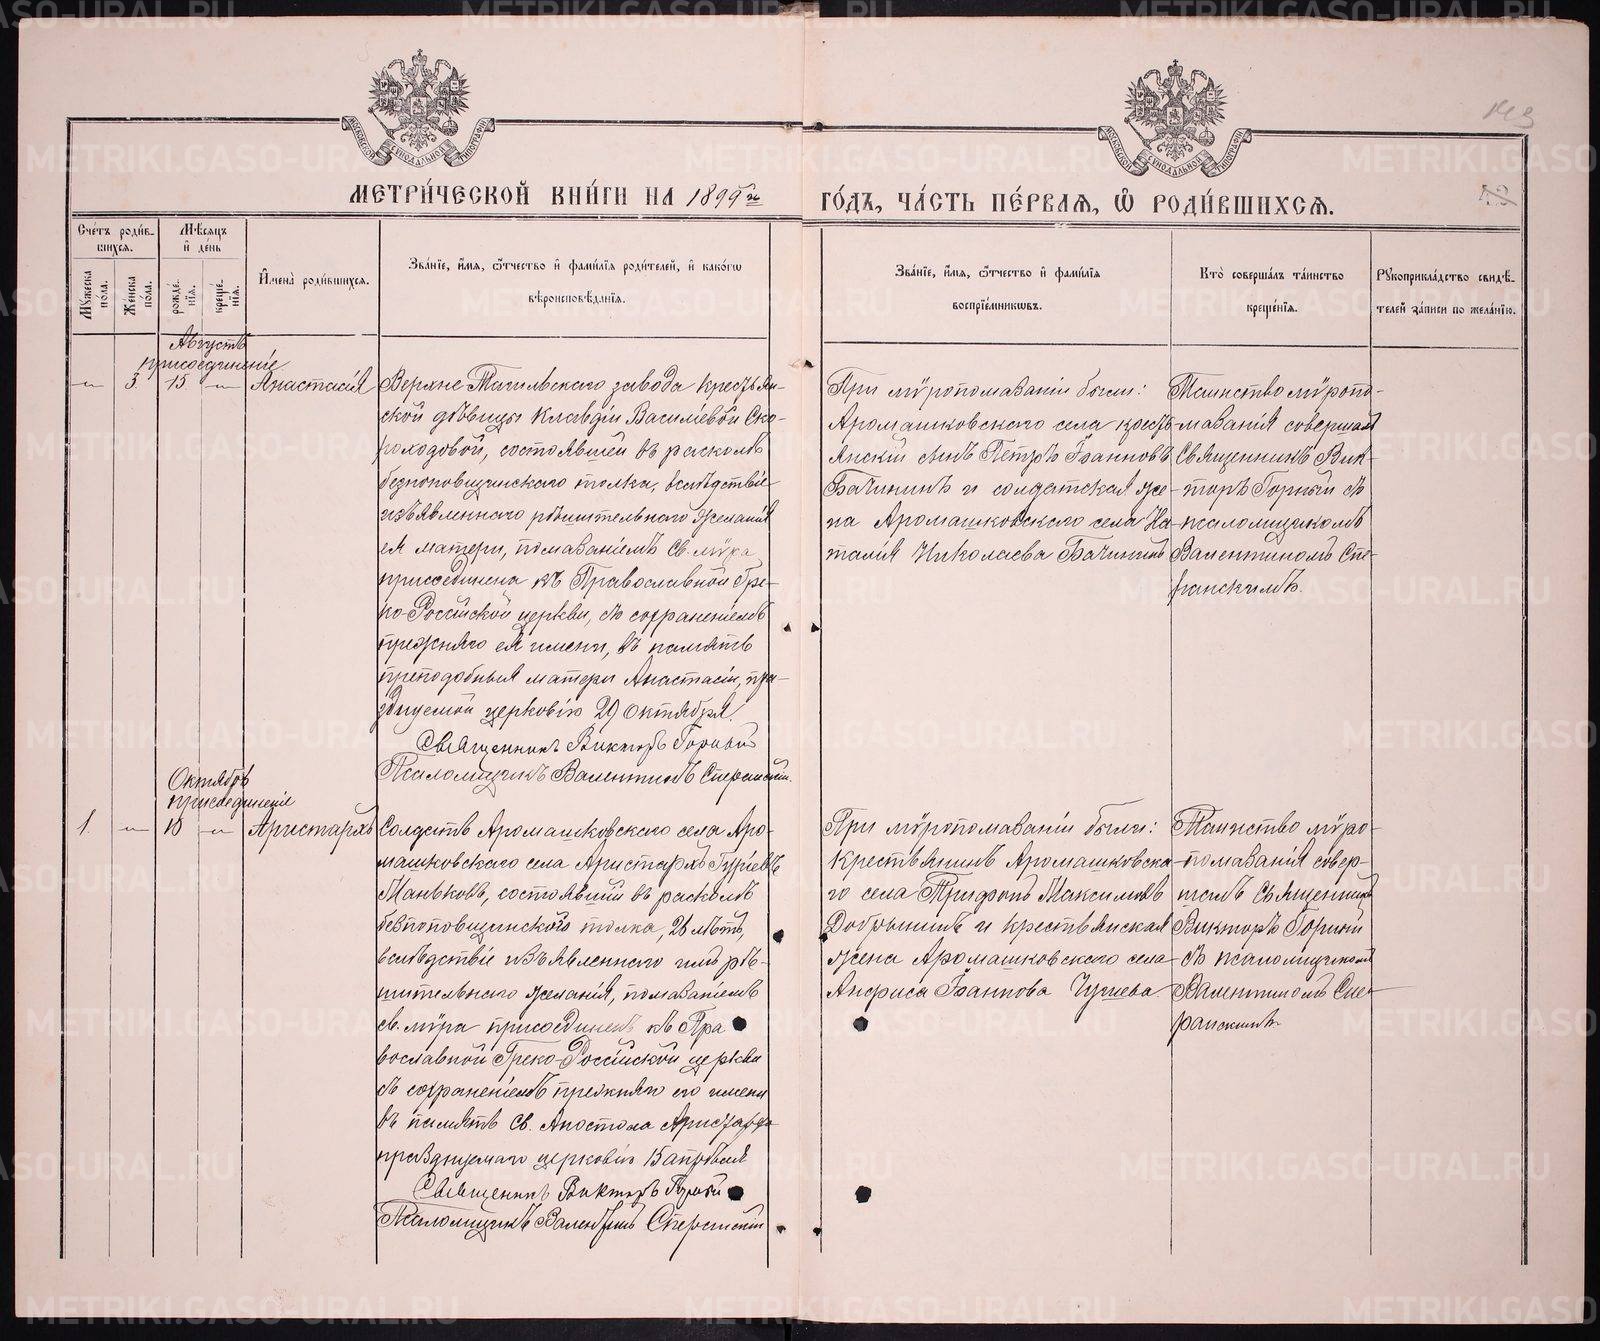 МЕТРИ́ЧЕСКОЙ КНИ́ГИ НА 1899й
ГО́ДЪ, ЧА́СТЬ ПЕ́РВАЯ, Ѿ РОДИ́ВШИХСЯ.
МОСКОВСКОЙ СѴНОДАЛЬНОЙ ТИПОГРАФІИ
МОСКОВСКОЙ СѴНОДАЛЬНОЙ ТИПОГРАФІИ
143
Сче́тъ роди́вшихся.
Мѣ́сяцъ и҆ де́нь
Мꙋ́жеска по́ла.
Же́нска по́ла.
рожде́нїя.
креще́нїя.
И҆мена̀ роди́вшихся.
Зва́нїе, и҆́мя, ѻ҆́тчество и҆ фами́лїя роди́телей, и҆ како́гѡ
вѣроисповѣ́данїя.
Зва́нїе, и҆́мя, ѻ҆́тчество и҆ фами́лїя
воспрїе́мникѡвъ.
Кто̀ соверша́лъ та́инство
креще́нїя.
Рꙋкоприкла́дство свидѣ́-
телей за́писи по жела́нїю.
Августъ
присоединеніе
—„— 3. 15 —„— Анастасія
Верхне-Тагильскаго завода крестьян-
ской дѣвицы Клавдіи Василіевой Ско-
роходовой, состоявшей въ расколѣ
безпоповщинскаго толка, вслѣдствіе
изъявленнаго рѣшительнаго желанія
ея матери, помазаніемъ Св. мѵра
присоединена къ Православной Гре-
ко-Россійской церкви, съ сохраненіемъ
прежняго ея имени, въ память
преподобныя матери Анастасіи, пра-
зднуемой церковію 29 Октября.
Священникъ Викторъ Горный
Псаломщикъ Валентинъ Сперанскій.
При мѵропомазаніи были:
Аромашковскаго села кресть-
янскій сынъ Петръ Іоанновъ
Бачининъ и солдатская же-
на Аромашковскаго села На-
талія Николаева Бачинина
Таинство мѵропо-
мазанія совершалъ
Священникъ Вик-
торъ Горный съ
псаломщикомъ
Валентиномъ Спе-
ранскимъ.
Октябрь
присоединеніе
1. —„— 10 —„— Аристархъ
Солдатъ Аромашковскаго села Аро-
машковскаго села Аристархъ Гуріевъ
Маньковъ, состоявшій въ расколѣ
безпоповщинскаго толка, 26 лѣтъ,
вслѣдствіе изъявленнаго имъ рѣ-
шительнаго желанія, помазаніемъ
св. мѵра присоединенъ къ Пра
вославной Греко-Россійской церкви
съ сохраненіемъ прежняго его имени
въ память Св. Апостола Аристарха
празднуемаго церковію 15 апрѣля
Священникъ Викторъ Горный
Псаломщикъ Валентинъ Сперанскій
При мѵропомазаніи были:
Крестьянинъ Аромашковска-
го села Трифонъ Максимовъ
Добрынинъ и крестьянская
жена Аромашковскаго села
Анфиса Іоаннова Чушева.
Таинство мѵро-
помазанія совер-
шалъ Священникъ
Викторъ Горный
съ псаломщикомъ
Валентиномъ Спе-
ранскимъ
METRIKI.GASO-URAL.RU